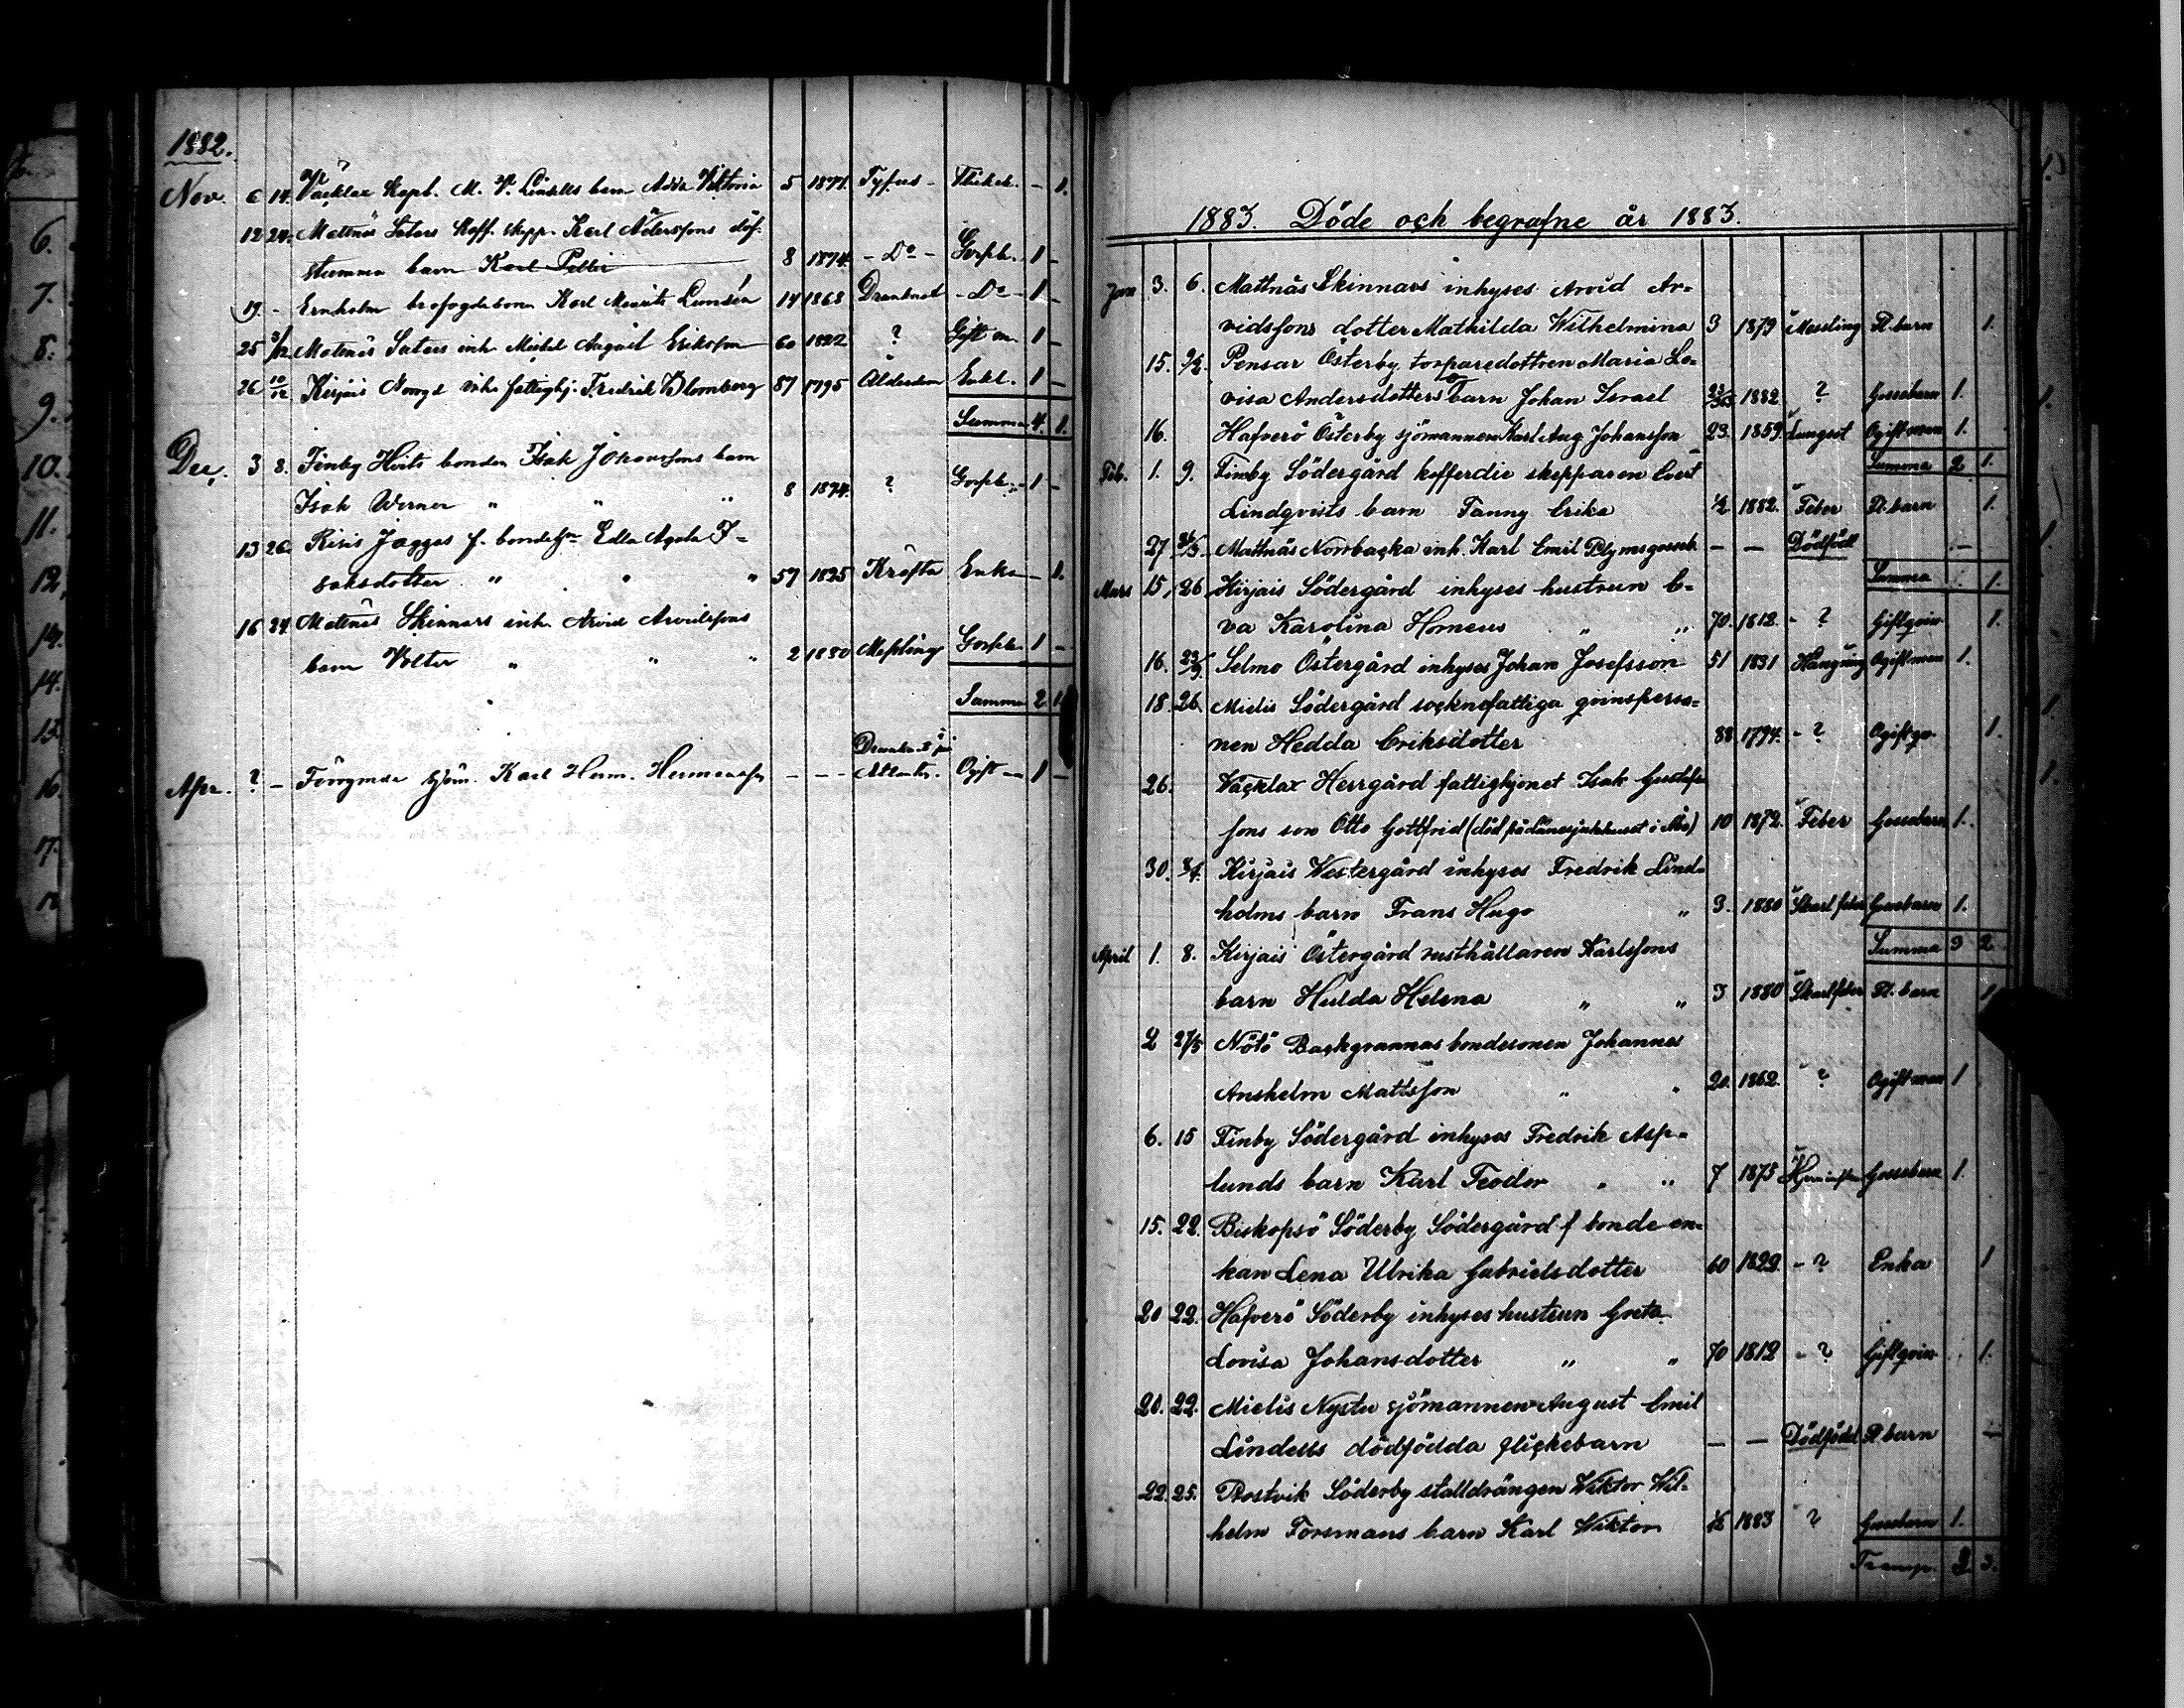 1882.
Nov. 6 14. Väcklax Kapt. M. V. Lindells barn Adda Viktoria 5 1877. Tyfus - Flickeb. - 1.
12 24. Mattnäs Saters Koff. skepp. Karl döf-
stumma barn Karl 8 1874. - Do - Gosseb. 1 -
19. - Ernholm brofogdeson Karl Maurits Lunden 14 1868 Drunknat - Do - 1 -
25 3/12 Mattnäs Saters inh. Mickel August Eriksson 60 1822 ? Gift m. 1 -
26 10/12 Kirjais Norrgd inh. fattighj. Fredrik Blomberg 87 1795 Ålderdom Enkl. 1 -
Summa 4. 1.
Dec. 3 8. Finby Hvits bonden Isak Johanssons barn
Isak Werner " " " 8 1874. ? Gosseb. 1 -
13 26. Risis Jägges f. bondehu Edla Agata I-
saksdotter " " " 57 1825 Kräfta Enka - 1.
16 24. Mattnäs Skinnars inh. Arvid Arvidssons
barn Volter " " " 2 1880 Messling Gosseb. 1 -
Summa 2 1
Drunkn. i
Apr. ? - Förgmda sjöm. Karl Herm. Hermansson - - - Atlanten. Ogift m 1 -
1883. Döde och begrafne år 1883.
Jan 3. 6. Mattnäs Skinnars inhyses Arvid Ar-
vidssons dotter Mathilda Wilhelmina 3 1879 Messling Fl. barn 1.
15. 9/2. Pensar Österby torparedottren Maria Lo-
visa Andersdotters barn Johan Israel 1882 ? Gossebarn 1.
16. Hafverö Österby sjömannen Karl Aug Johansson 23. 1859. Lungsot Ogift man 1.
Summa 2 1.
Feb. 1. 9. Finby Södergård kofferdie skepparen Evert
Lindqvists barn Fanny Erika 1/2 1882. Feber Fl. barn 1.
27 Mattnäs Norrbacka inh. Karl Emil Blyms gosseb. - - Dödfödt -
Summa 1.
Mars 15, 26 Kirjais Södergård inhyses hustrun E-
va Karolina Homeus " " 70. 1812. - ? Gift qvin 1.
16. 23/3. Selmo Östergård inhyses Johan Josefsson 51 1831 Hängning Ogift man 1.
18. 26. Mielis Södergård socknefattiga qvinsperso-
nen Hedda Eriksdotter 88 1794. - ? Ogift qv. 1.
26. Väcklax Herrgård fattighjonet Isak Gustafs-
sons son Otto Gottfrid (död på länesjukhuset i Åbo) 10 1872. Feber Gossebarn 1.
30. 8/4. Kirjais Westergård inhyses Fredrik Lind-
holms barn Frans Hugo " 3. 1880 Skarl feber Gossebarn 1.
Summa 3 2
April 1. 8. Kirjais Östergård rusthållaren Karlssons
barn Hulda Helena " " 3 1880 Skarlfeber Fl. barn 1
2 27/5 Nötö Backgrannas bondesonen Johannes
Anshelm Mattsson " " 20. 1862. ? Ogift man 1
6. 15 Finby Södergård inhyses Fredrik Asp-
lunds barn Karl Teodor " " 7 1875 Gossebarn 1.
15. 22. Biskopsö Söderby Södergård f bonde en-
kan Lena Ulrika Gabrielsdotter 60 1822 - ? Enka 1
20 22. Hafverö Söderby inhyses hustrun Greta
Lovisa Johansdotter " " 70 1812 - ? Gift qvin 1.
20. 22. Mielis Nystu sjömannen August Emil
Lindells dödfödda flickebarn - - Dödfödd Fl barn -
22. 25. Rostvik Söderby stalldrängen Wiktor Wil-
helm Forsmans barn Karl Wiktor 1/2 1883 ? Gossebarn 1.
Transp. 3 3.